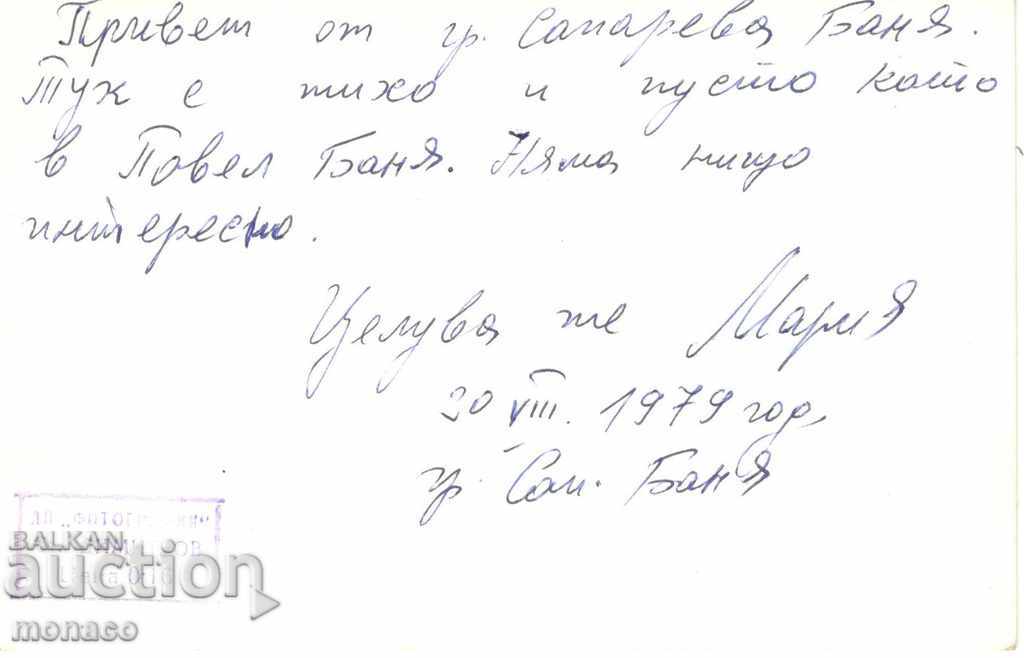 Привет от гр. Сапарева Баня.
Тук е тихо и пусто като
в Повел Баня. Няма нищо
интересно.
Целува те Мария
20 VIII. 1979 год.
гр. Сап. Баня
BALKAN
auction
monaco